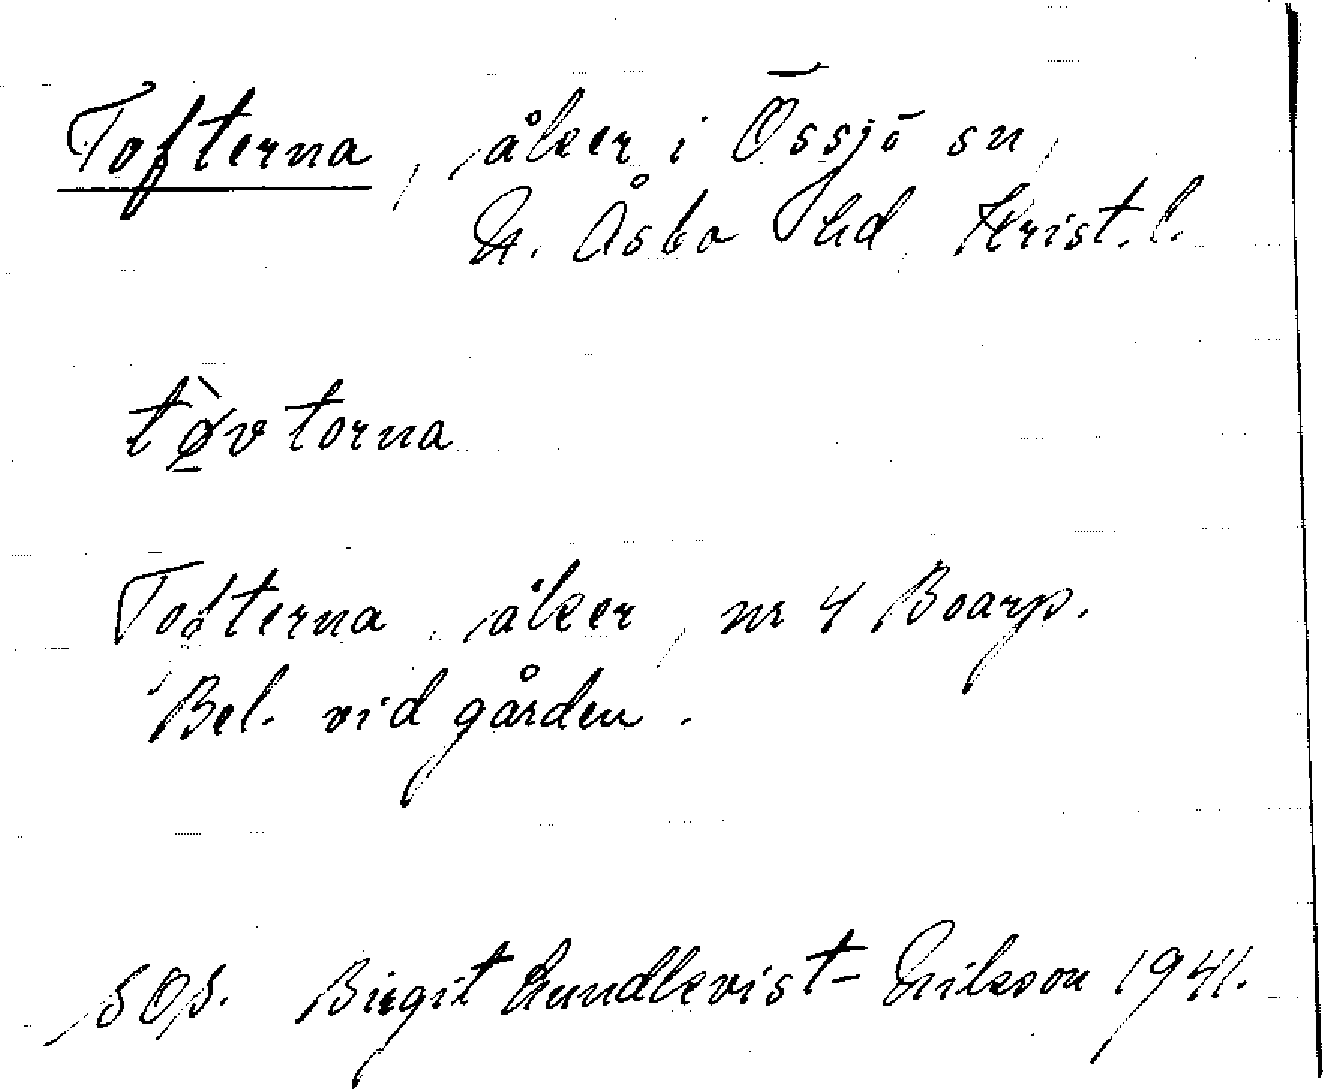 Tofterna, åker i Össjö sn,
N. Åsbo hd, Krist. l.
tø̀vtorna
Tofterna, åker, nr 4 Boarp.
Bel. vid gården.
SOS. Birgit Lundkvist-Erikson 1941.